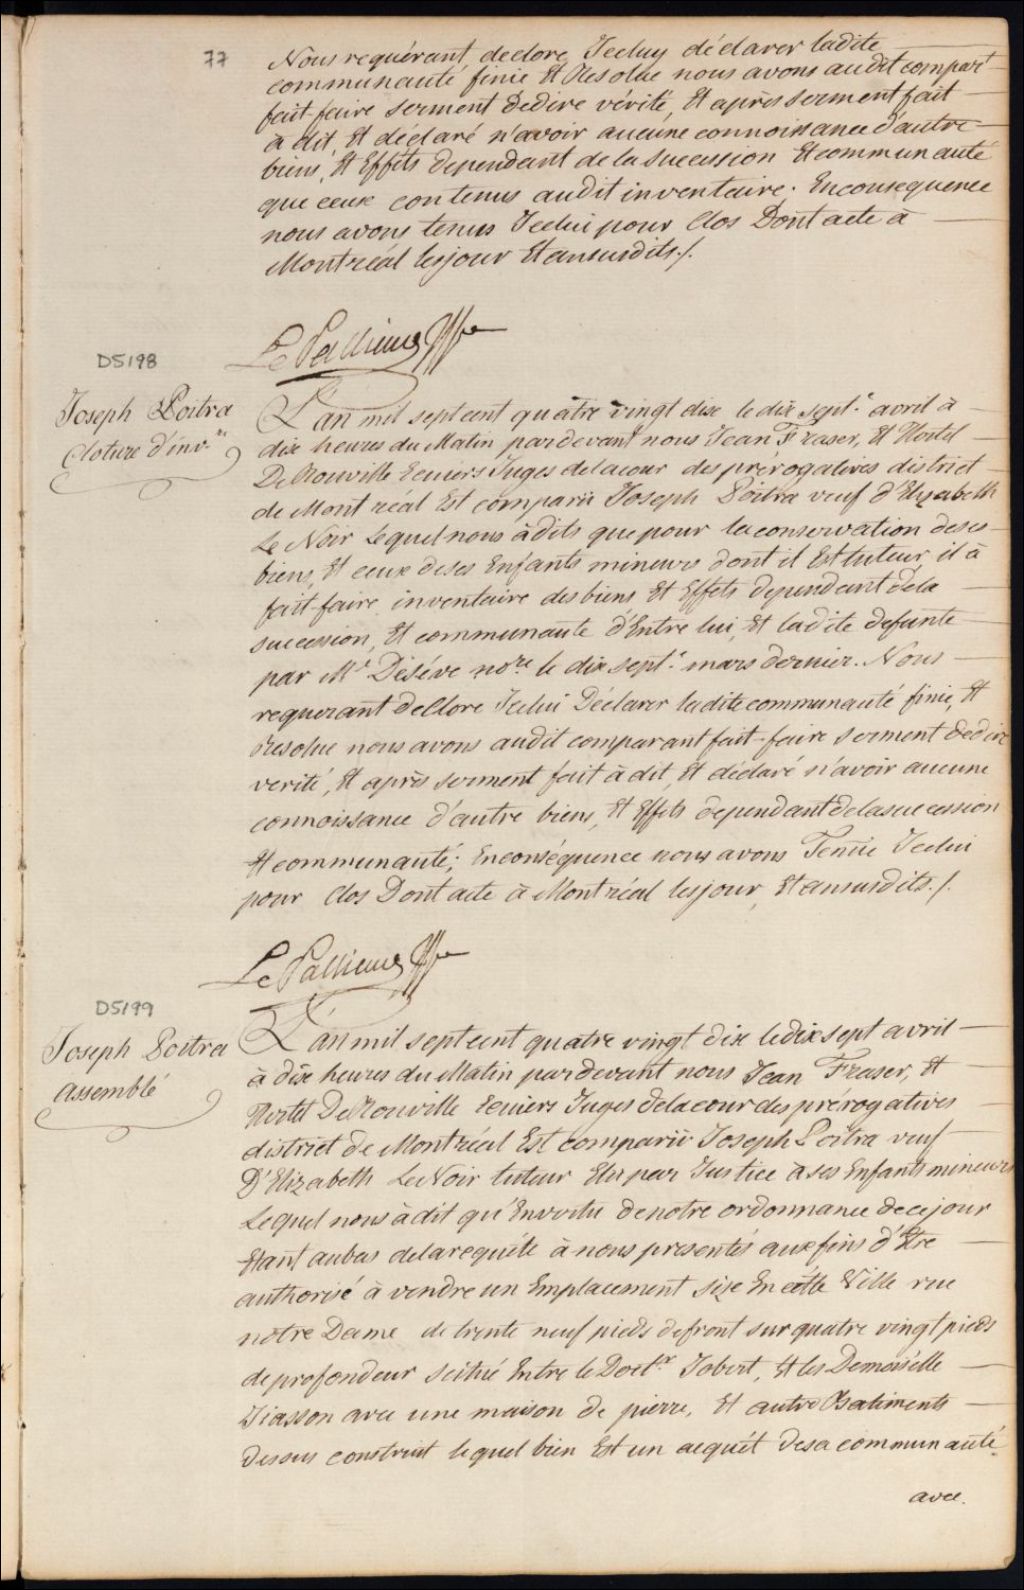 77
Nous requérant declore Jeeluy déclarer ladite
communauté finie Et Resolue nous avons audit comparé
fait faire serment Dedire vérité, Et après serment fait
a dit, Et déclaré n'avoir aucune connoissance d'autre
biens, Et Effets dependant de la Sucession Et communauté
que ceux contenus audit inventaire. Enconsequence
nous avons tenus Jcelui pour Clos Dont acte à
Montréal lesjour Etansusdits./.
Le Pallieur Gffr
D5198
Joseph Poitra
Cloture d'inv.re
L'an mil septcent quatre vingt dix le dix sept.e avril à
dix heures du Matin pardevant nous Jean Fraser, Et Hertel
De Rouville Ecuiers Juges delacour des prérogatives district
de Mont réal Est comparu Joseph Poitra veuf d'Elyzabeth
Le Noir Lequel nous à dits que pour la conservation deses
biens, Et ceux deses Enfants mineurs dont il Est tuteur, il à
fait faire inventaire des biens Et Effets dependant dela
sucession, Et communauté d'Entre lui, Et ladite defunte
par Mr Deséve nore le dix sept.e mars dernier. Nous
requerant deClore Jcelui Déclarer ladite communauté finie, Et
Resolue nous avons audit comparant fait faire serment Dedire
verité, Et après serment fait à dit, Et déclaré n'avoir aucune
connoissance d'autre biens, Et Effets dependant delasucession
Et communauté; Enconséquence nous avons Tenue Jcelui
pour Clos Dont acte à Montréal lesjour, Etansusdits./.
Le Pallieur Gffr
D5199
Joseph Poitra
Assemblé
L'an mil septcent quatre vingt dix ledix sept avril
à dix heures du Matin pardevant nous Jean Fraser, Et
Hertel DeRouville Ecuiers Juges delacour des prérogatives
district de Montréal Est comparu Joseph Poitra veuf
D'Elizabeth LeNoir tuteur Elu par Justice à ses Enfants mineurs
Lequel nous à dit qu'Envertu denotre ordonnance decejour
Etant aubas delarequéte à nous presentés aux fins d'Etre
authorisé à vendre un Emplacement size En cette Ville rue
notre Dame de trente neuf pieds defront sur quatre vingt pieds
deprofondeur scitué Entre le Doctr Jobert, Et les Demoiselle
Giasson avec une maison de pierre, Et autre Batiments
dessus construit lequel bien Est un acquét desa communauté
avec.